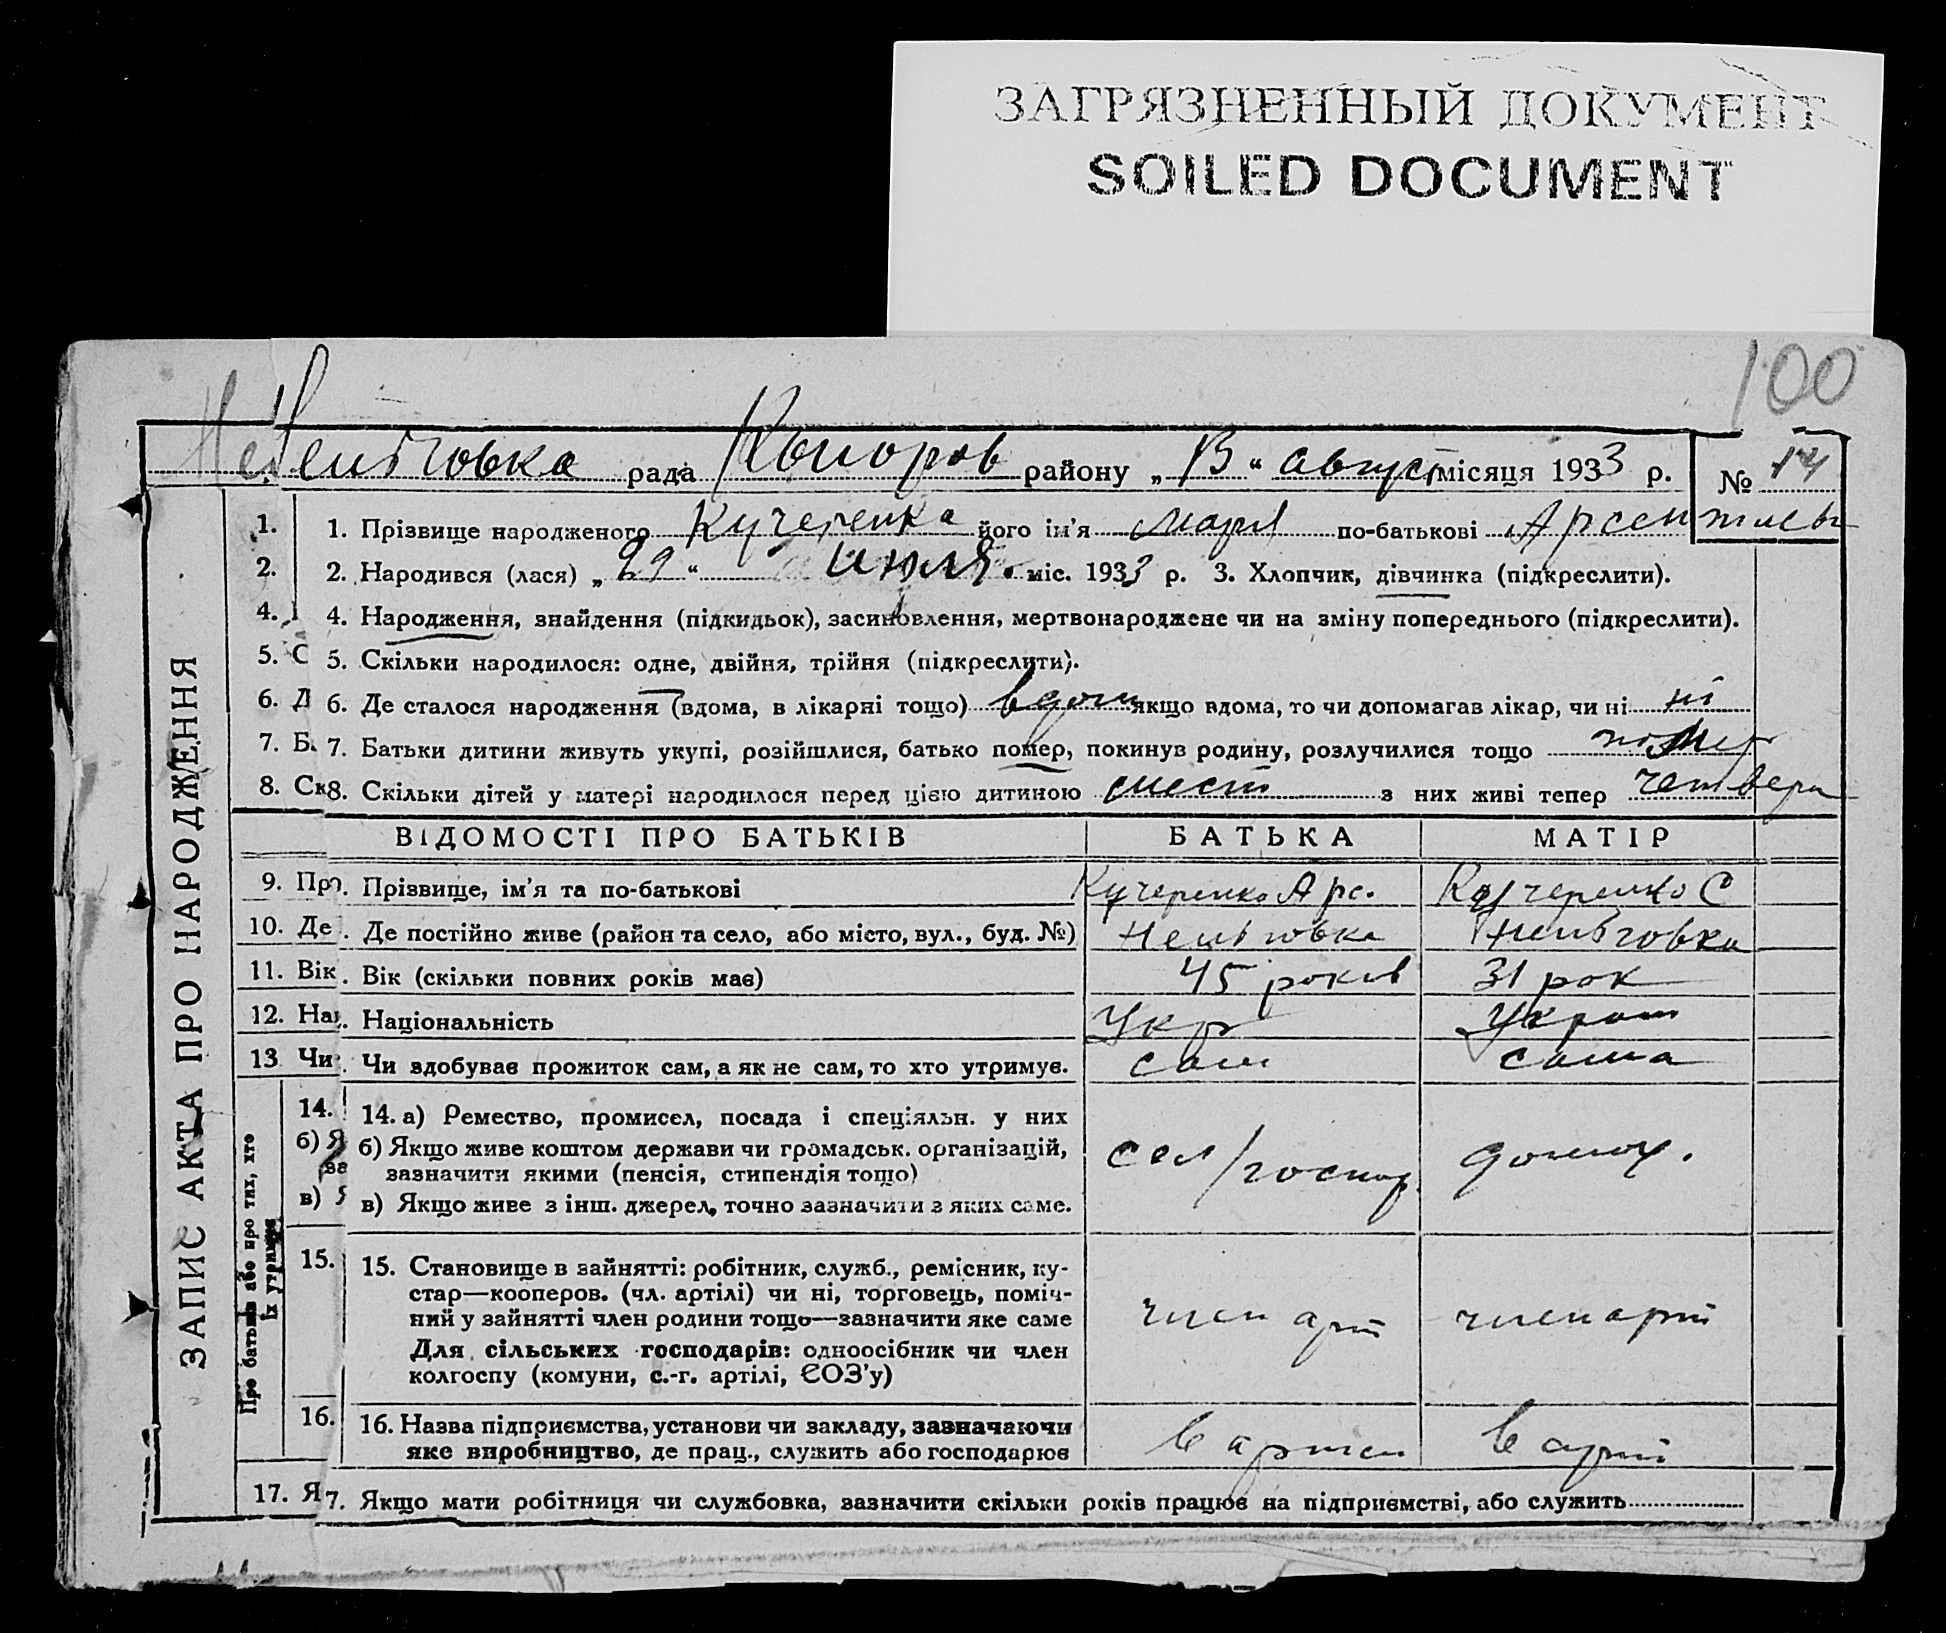 ЗАГРЯЗНЕННЫЙ ДОКУМЕНТ
SOILED DOCUMENT
100
рада району „ 13 “ август місяця 1933 р. № 14
ЗАПИС АКТА ПРО НАРОДЖЕННЯ
1. 1. Прізвище народженого Кучеренка його ім'я Марія по-батькові
2. 2. Народився (лася) „ 29 “ июля міс. 1933 р. 3. Хлопчик, дівчинка (підкреслити).
4. 4. Народження, знайдення (підкидьок), засиновлення, мертвонароджене чи на зміну попереднього (підкреслити).
5. С 5. Скільки народилося: одне, двійня, трійня (підкреслити).
6. Д 6. Де сталося народження (вдома, в лікарні тощо) вдома якщо вдома, то чи допомагав лікар, чи ні ні
7. Б 7. Батьки дитини живуть укупі, розійшлися, батько помер, покинув родину, розлучилися тощо помер
8. Ск 8. Скільки дітей у матері народилося перед цією дитиною шест з них живі тепер четверо
ВІДОМОСТІ ПРО БАТЬКІВ БАТЬКА МАТІР
9. Прі . Прізвище, ім'я та по-батькові Кучеренко Арс. Кучеренко С
10. Де . Де постійно живе (район та село, або місто, вул., буд. №)
11. Вік . Вік (скільки повних років має) 45 років 31 рок
12. На . Національність Укр Украт
13. Чи . Чи здобуває прожиток сам, а як не сам, то хто утримує. сам сама
Про батька або про тих, хто їх утримує
14. 14. а) Ремество, промисел, посада і спеціяльн. у них
б) Я б) Якщо живе коштом держави чи громадськ. організацій, сел/господ. домог.
за зазначити якими (пенсія, стипендія тощо)
в) Я в) Якщо живе з інш. джерел, точно зазначити з яких саме.
15. 15. Становище в зайнятті: робітник, служб., ремісник, ку-
стар—кооперов. (чл. артілі) чи ні, торговець, поміч-
ний у зайнятті член родини тощо—зазначити яке саме член арт член арт
Для сільських господарів: одноосібник чи член
колгоспу (комуни, с.-г. артілі, СОЗ'у)
16. 16. Назва підприємства, установи чи закладу, зазначаючи
яке виробництво, де прац., служить або господарює в артел в арті
17. Я 7. Якщо мати робітниця чи службовка, зазначити скільки років працює на підприємстві, або служить